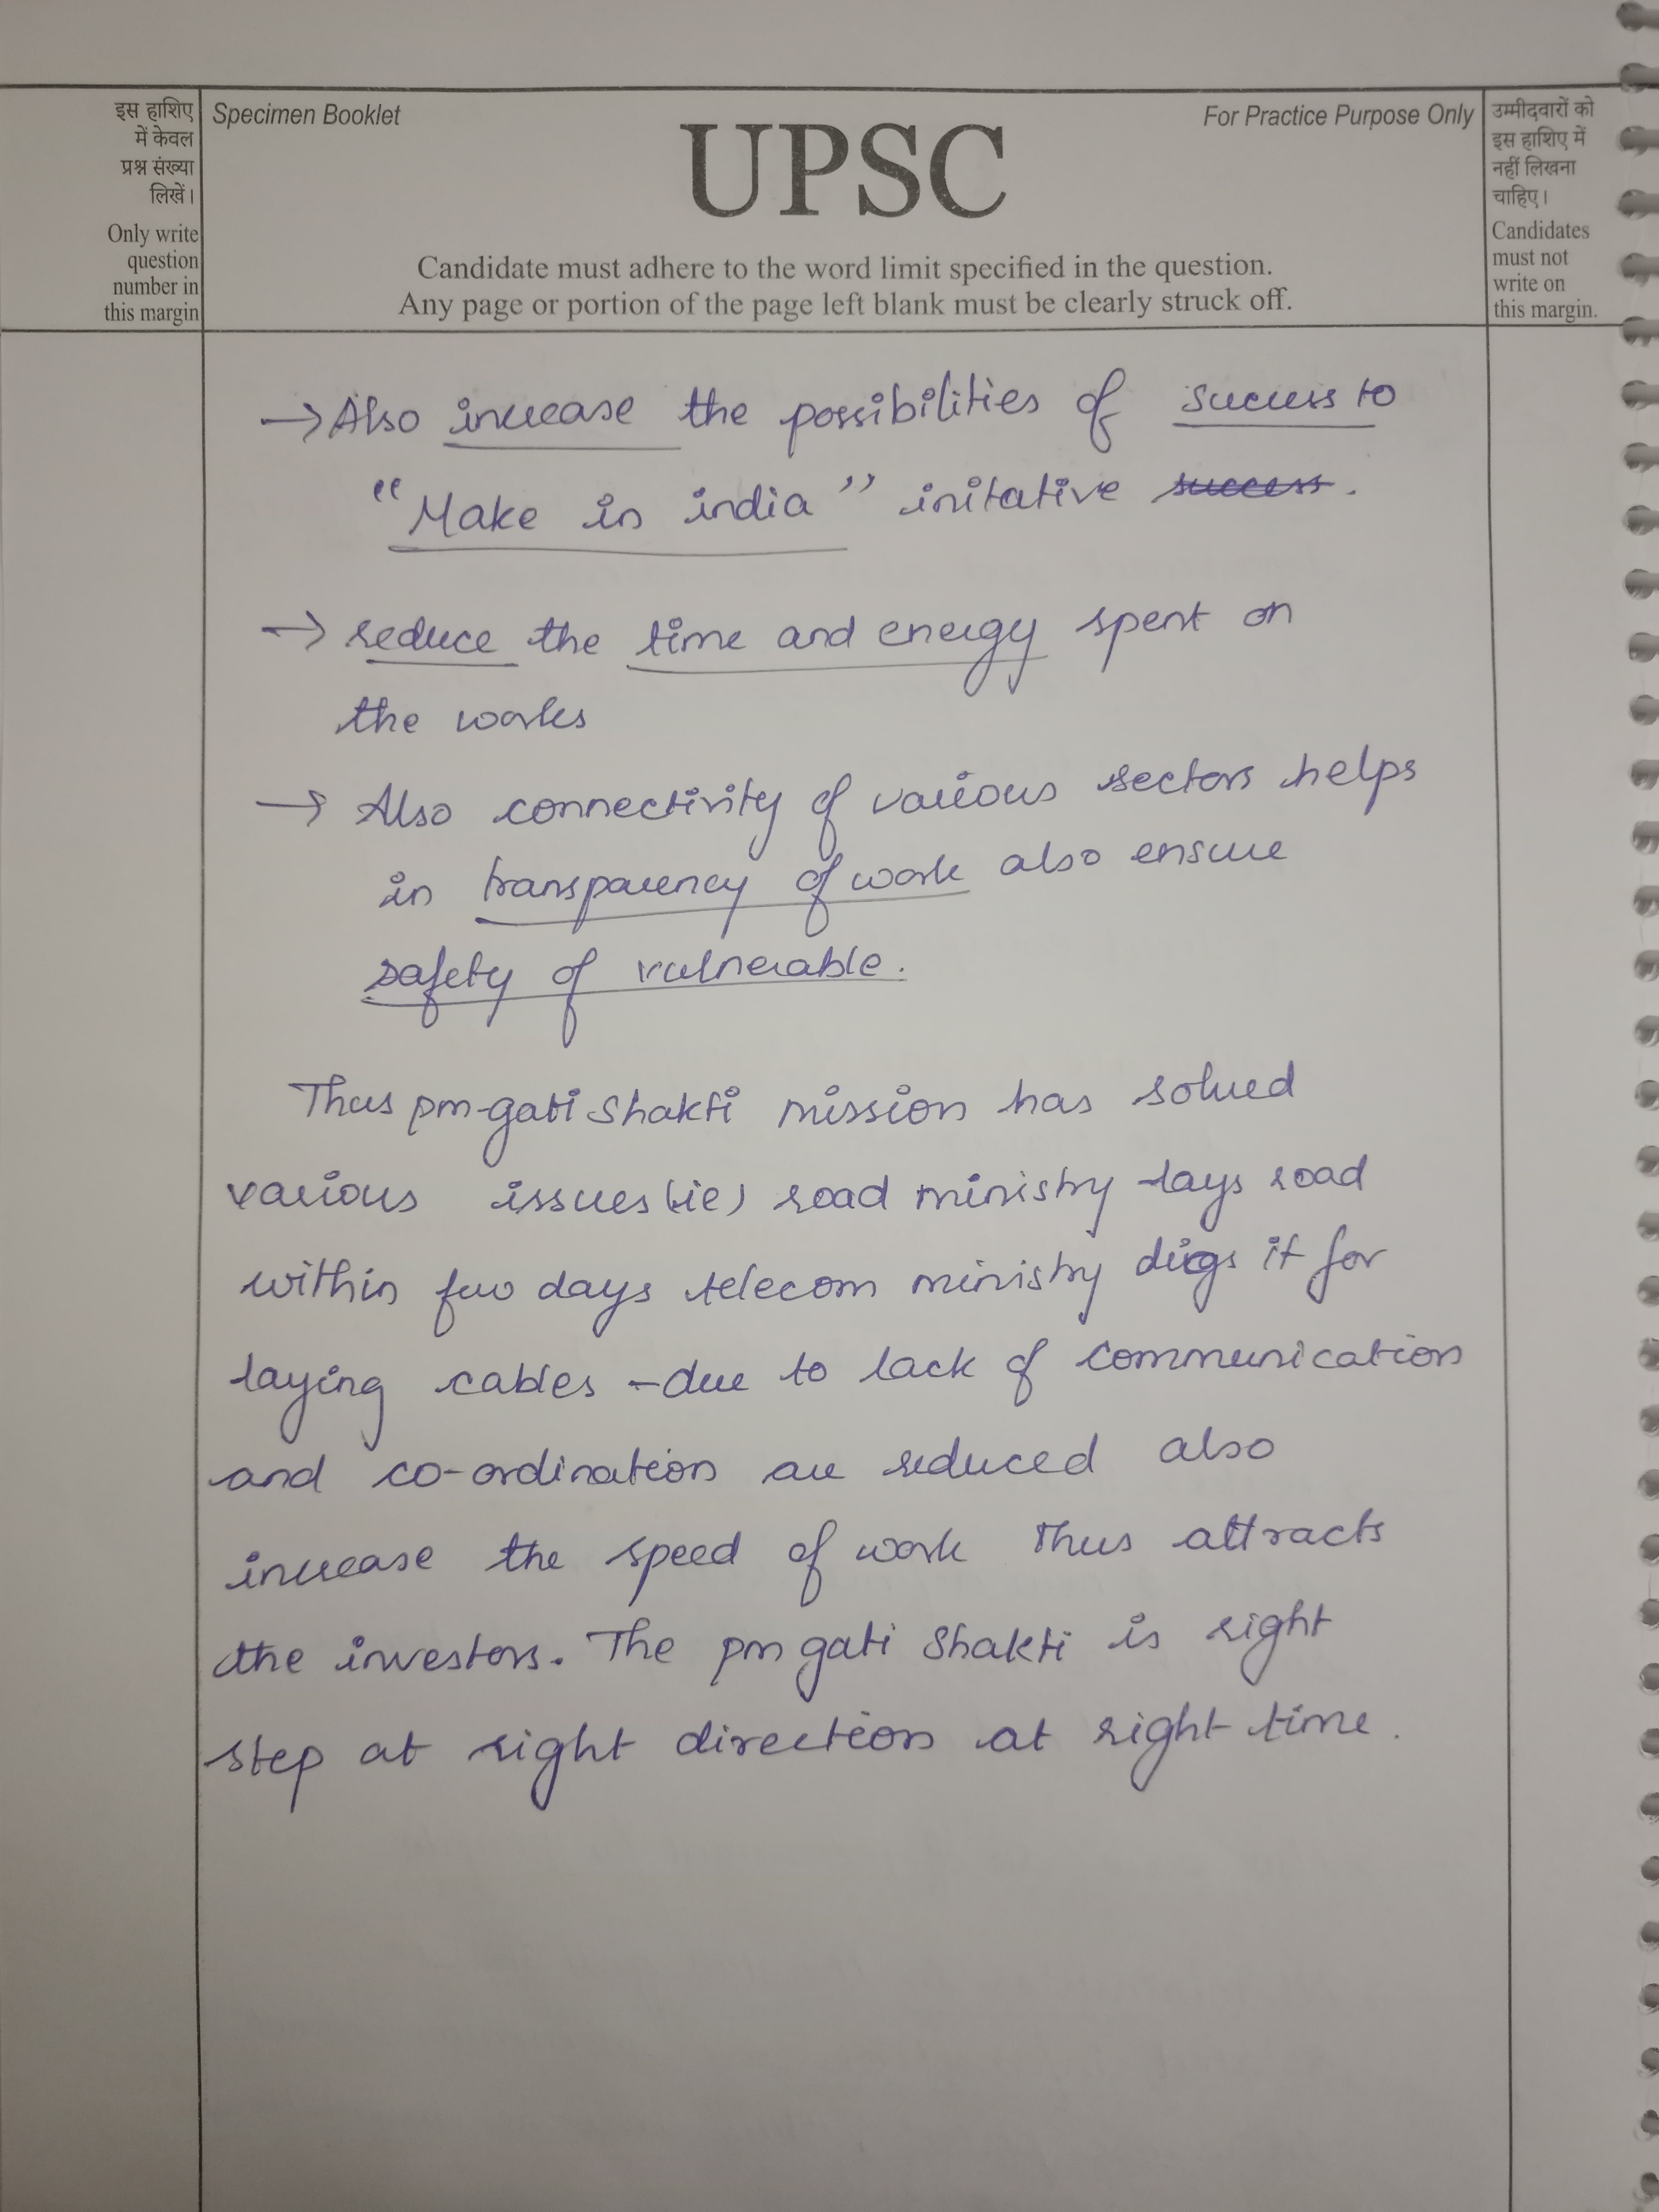 इस हाशिए
में केवल
प्रश्न संख्या
लिखें।
Only write
question
number in
this margin
Specimen Booklet
For Practice Purpose Only
UPSC
Candidate must adhere to the word limit specified in the question.
Any page or portion of the page left blank must be clearly struck off.
उम्मीदवारों को
इस हाशिए में
नहीं लिखना
चाहिए।
Candidates
must not
write on
this margin.
→ Also increase the possibilities of success to
"Make in india" initative success.
→ reduce the time and energy spent on
the works
→ Also connectivity of various sectors helps
in transparency of work also ensure
safety of vulnerable.
Thus pm-gati Shakti mission has solved
various issues (ie) road ministry lays road
within few days telecom ministry digs it for
laying cables - due to lack of communication
and co-ordination are reduced also
increase the speed of work Thus attracts
the investors. The pm gati Shakti is right
step at right direction at right time.